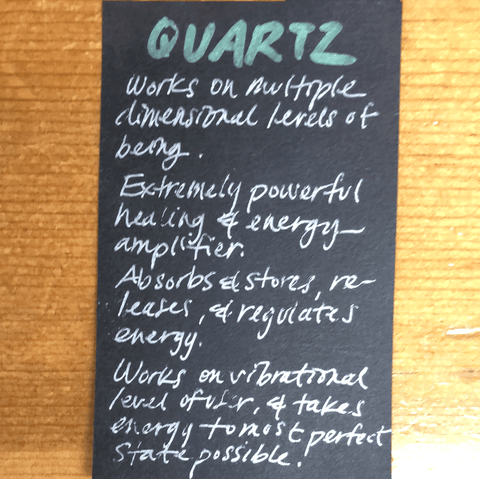 QUARTZ
Works on multiple
dimensional levels of
being.
Extremely powerful
healing & energy
amplifier.
Absorbs & stores, re-
leases, & regulates
energy.
Works on vibrational
level of user, & takes
energy to most perfect
state possible.